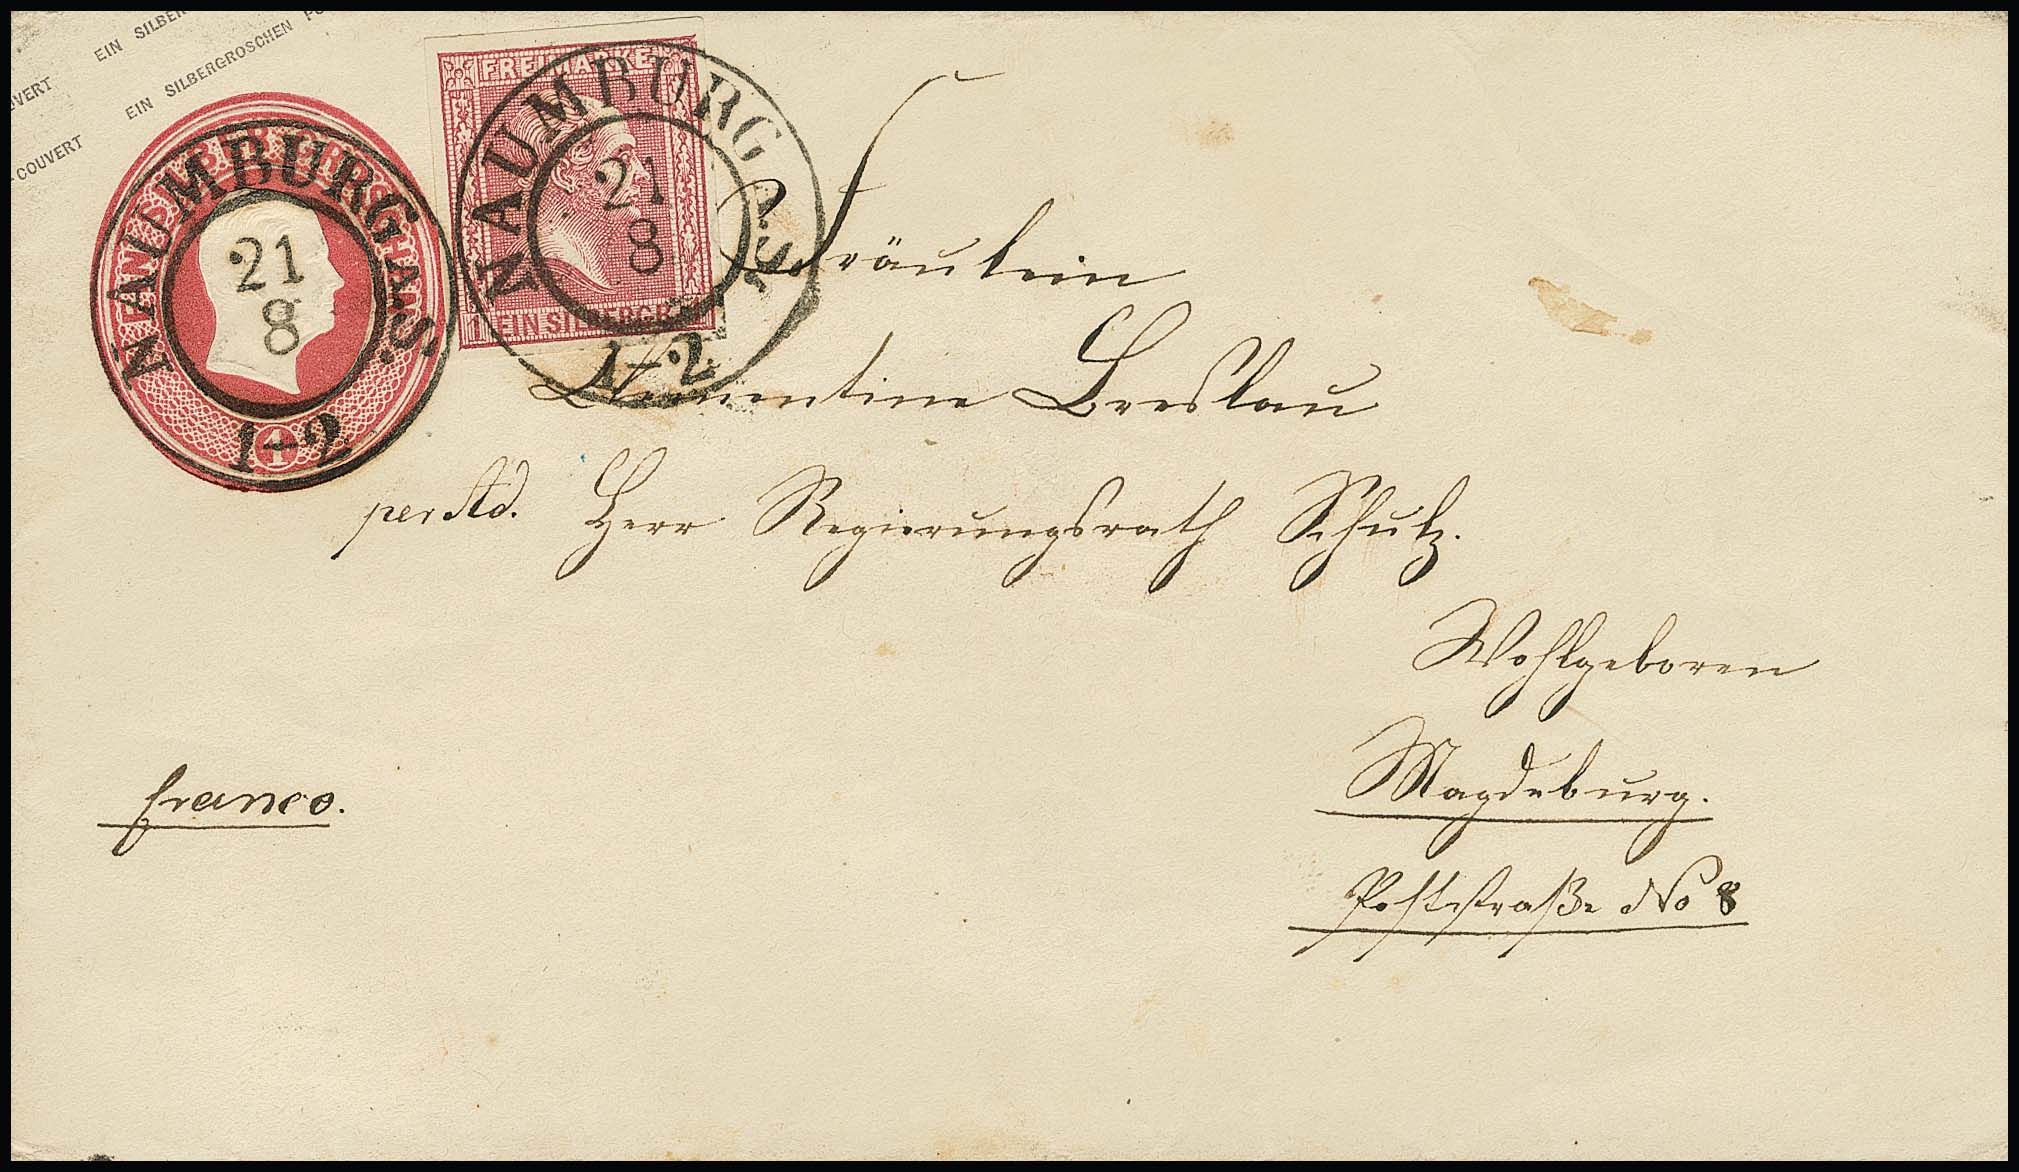 EIN SILBER
UVERT EIN SILBERGROSCHEN PO
COUVERT
NAUMBURG A/S.
21
8
1-2
1
FREIMARKE
1 EIN SILBERGR.
NAUMBURG A/S.
21
8
1-2
Fräulein
Clementine Breslau
per Ad. Herr Regierungsrath Schulz.
Wohlgeboren
franco.
Magdeburg.
Poststraße No 8